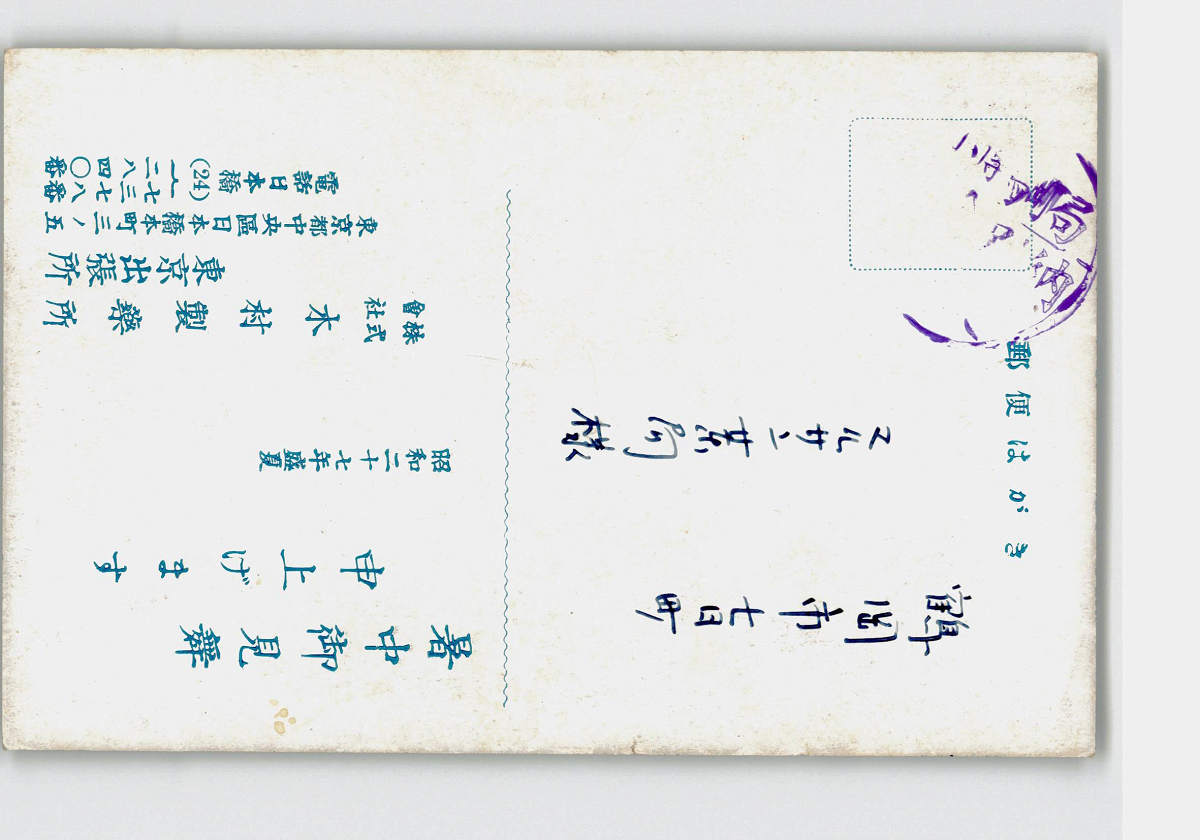 郵便はがき
鶴岡市七日町
マルサン薬局様
暑中御見舞
申上げます
昭和二十七年盛夏
株式會社 木村製藥所
東京出張所
東京都中央區日本橋本町三ノ五
電話日本橋(24) 七三七八番
二八四〇番